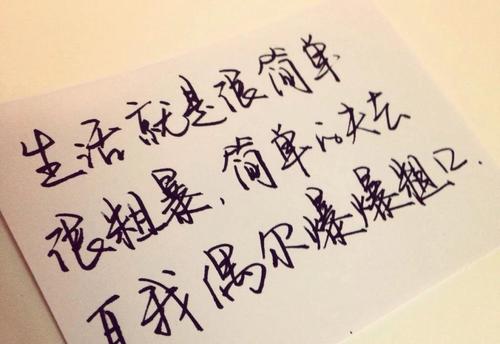 生活就是很简单
很粗暴，简单的失去
自我偶尔爆爆粗口．